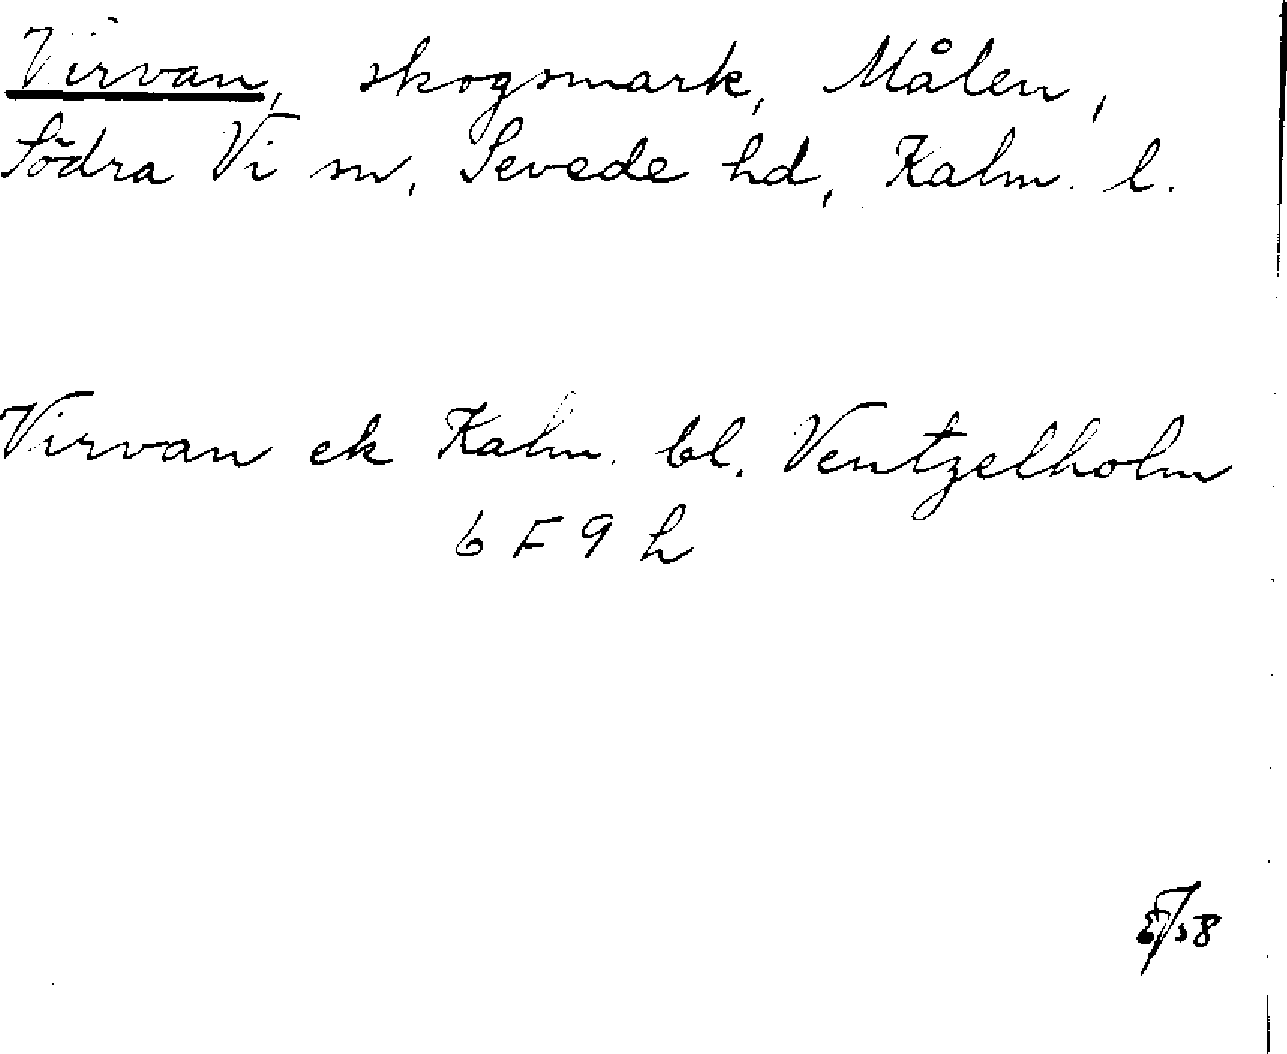 Virvan, skogsmark, Målen,
Södra Vi sn, Sevede hd, Kalm. l.
Virvan ek Kalm. bl. Ventzelholm
6 F 9 h